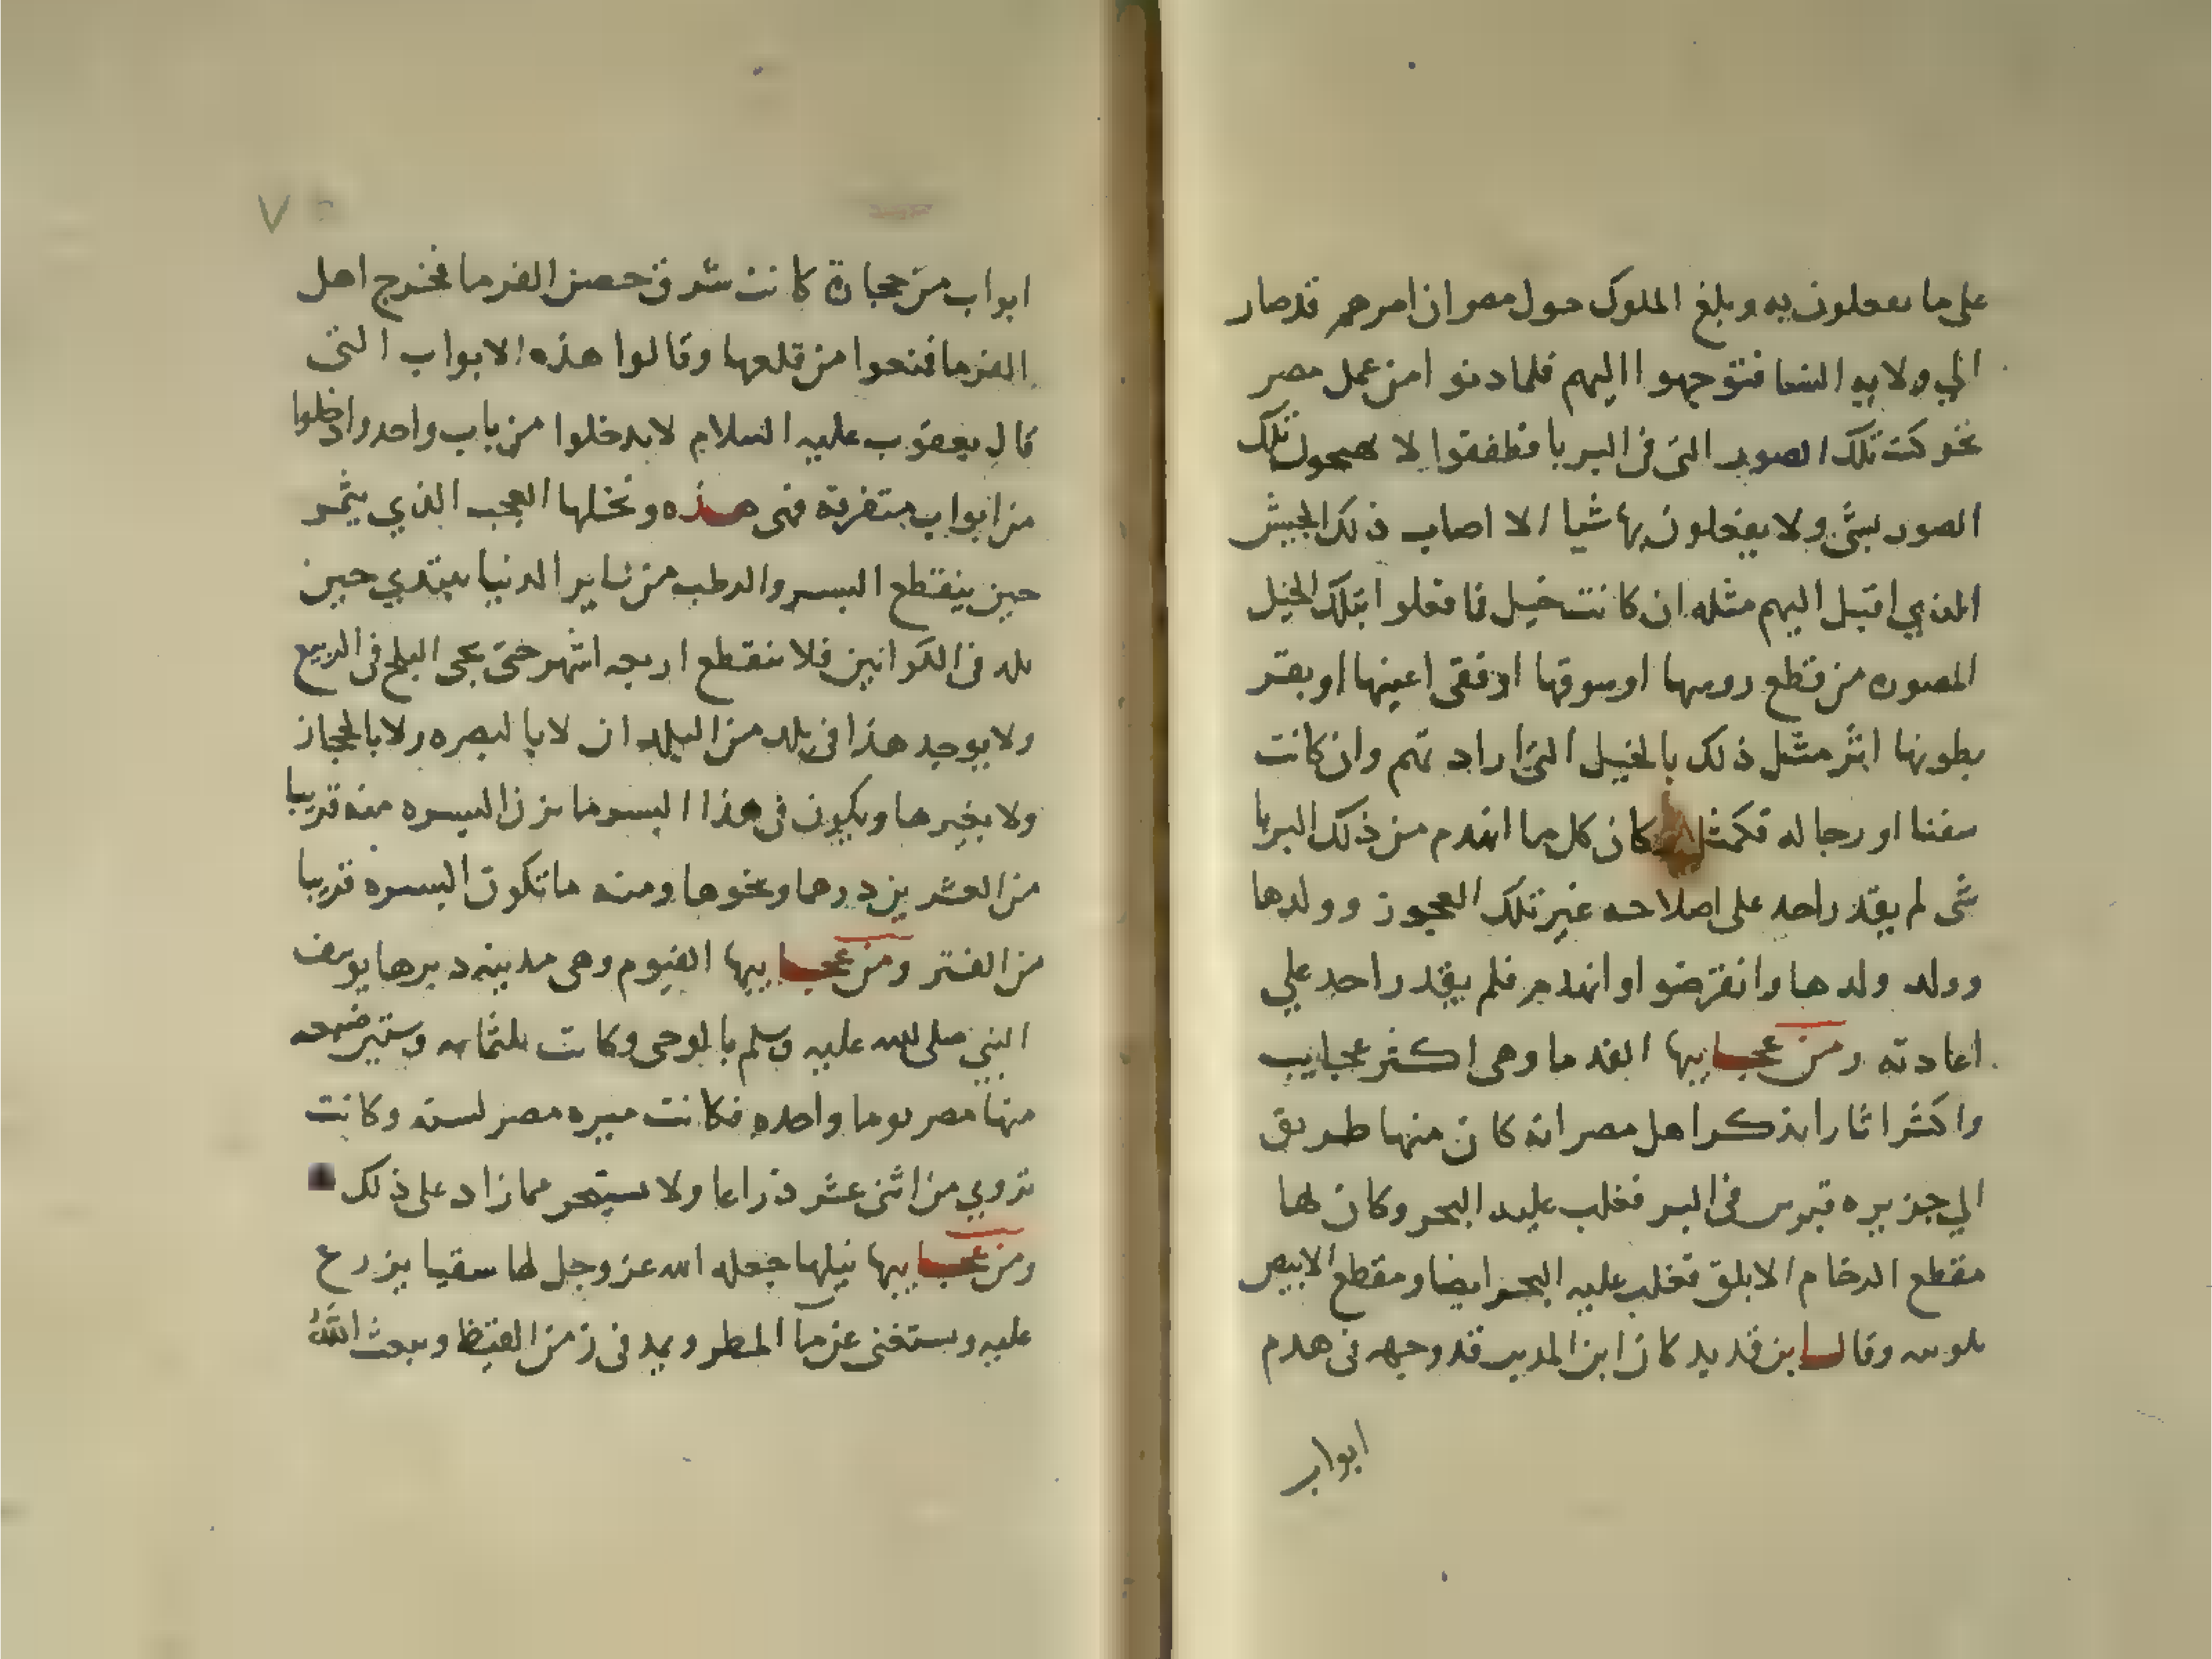 على ما يفعلون به وبلغ الملوك حول مصر ان امرهم قد صار
الي ولايه النسا فتوجهوا اليهم فلما دنوا من عمل مصر
تحركت تلك الصور التى فى البربا فطفقوا لا يهيجون تلك
الصور بشى ولا يفعلون بها شيا الا اصاب ذلك الجيش
الذي اقبل اليهم مثله ان كانت خيل فما فعلوا بتلك الخيل
المصوره من قطع روسها او سوقها او فقى اعينها او بقر
بطونها اثر مثل ذلك بالخيل التى ارادتهم وان كانت
سفنا او رجاله فكمثل كان كل ما انهدم من ذلك البربا
شى لم يقدر احد على اصلاحه غير تلك العجوز وولدها
وولد ولدها وانقرضوا وانهدم فلم يقدر احد علي
اعادته ومن عجايبها الفرما وهى اكثر عجايب
واكثر اثارا يذكر اهل مصر انه كان منها طريق
الي جزيره قبرس فى البر فغلب عليه البحر وكان لها
مقطع الرخام الابلق فغلب عليه البحر ايضا ومقطع الابيض
بلوبيه وقال ابن قديد كان ابن المدبر قد وجه فى هدم
ابواب
٧
ابواب من حجارة كانت شرقى حصن الفرما فخرج اهل
الفرما فمنعوا من قلعها وقالوا هذه الابواب التى
قال يعقوب عليه السلام لا تدخلوا من باب واحد وادخلوا
من ابواب متفرقة فهى هذه ونخلها العجب الذي يثمر
حين ينقطع البسر والرطب من ساير الدنيا يبتدي حين
يلد فى الكوانين فلا ينقطع اربعه اشهر حتى يجى البلح فى الربيع
ولا يوجد هذا فى بلد من البلدان لا بالبصره ولا بالحجاز
ولا بغيرها ويكون فى هذا البسر ما يزن البسره منه قريبا
من العشرين درهما ونحوها ومنه ما تكون البسره قريبا
من الفتر ومن عجايبها الفيوم وهى مدينه دبرها يوسف
النبى صلى الله عليه وسلم بالوحى وكانت ثلثمايه وستين ضيعه
منها مصر يوما واحده فكانت ميره مصر لسنه وكانت
تروي من اثنى عشر ذراعا ولا يستبحر مما زاد على ذلك
ومن عجايبها نيلها جعله الله عز وجل لها سقيا يزرع
عليه ويستغنى عن ما المطر ويمد فى زمن القيظ ويبعث الله